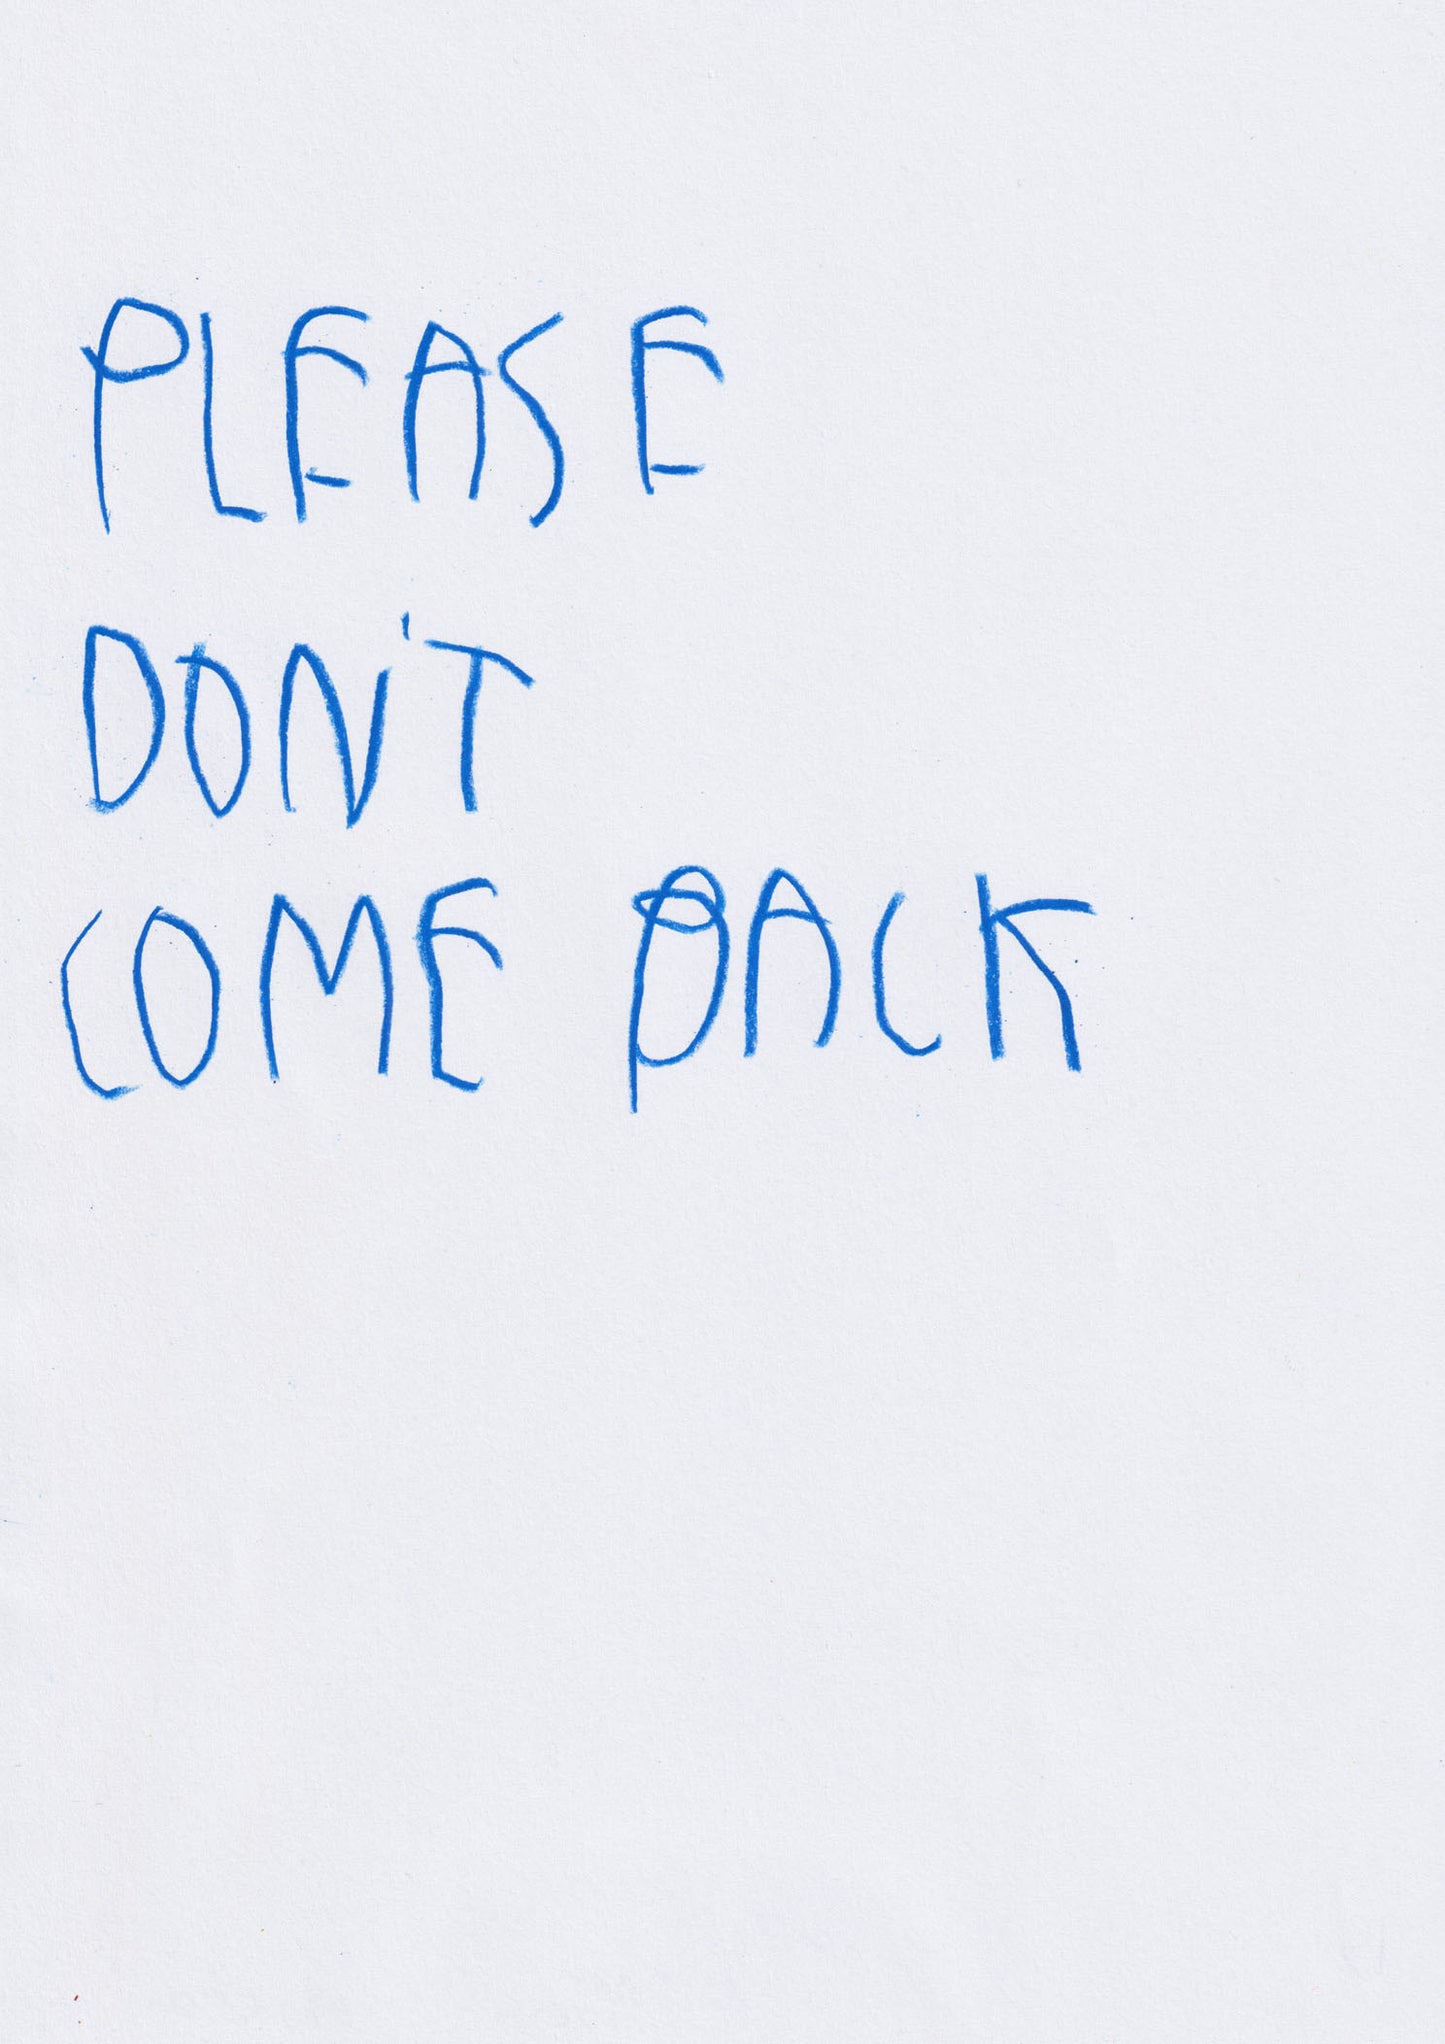 PLEASE
DON'T
COME BACK